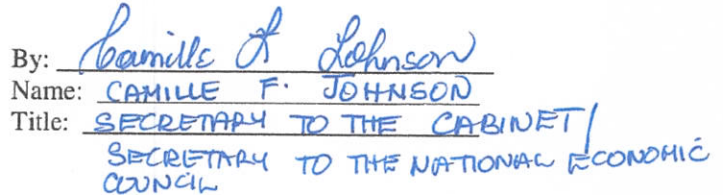 By: Camille F Johnson
Name: CAMILLE F. JOHNSON
Title: SECRETARY TO THE CABINET/
SECRETARY TO THE NATIONAL ECONOMIC
COUNCIL